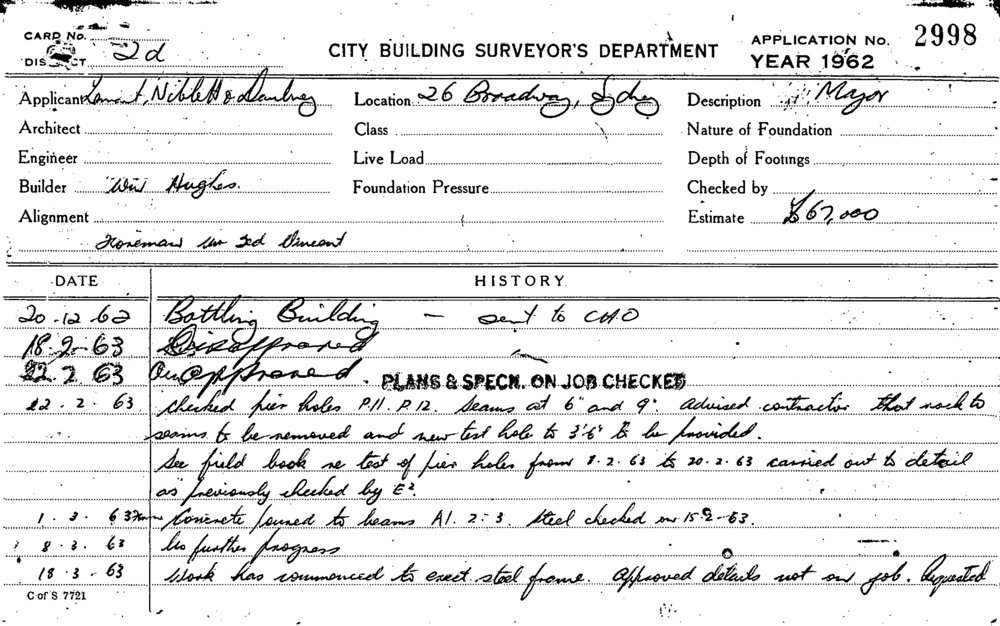 CARD No.
DISTRICT 2d
CITY BUILDING SURVEYOR'S DEPARTMENT
APPLICATION No. 2998
YEAR 1962
Applicant Niblett &
Location 26 Broadway, Sydney
Description Major
Architect
Class
Nature of Foundation
Engineer
Live Load
Depth of Footings
Builder Wm Hughes.
Foundation Pressure
Checked by
Alignment
Estimate £67,000
Foreman Mr Ted Vincent
DATE HISTORY
20.12.62 Bottling Building — sent to CHO
18.2.63 Disapproved
22.2.63 approved. PLANS & SPECN. ON JOB CHECKED
22.2.63 Checked pier holes P.11. P.12. Seams at 6" and 9". Advised contractor that rock to
seams to be removed and new test hole to 3'6" to be provided.
See field book re test of pier holes from 8.2.63 to 20.2.63 carried out to detail
as previously checked by E2.
1.3.63 Concrete poured to beams A1. 2-3. Steel checked on 15-2-63.
8.3.63 No further progress
18.3.63 Work has commenced to erect steel frame. Approved details not on job. Requested
C of S 7721